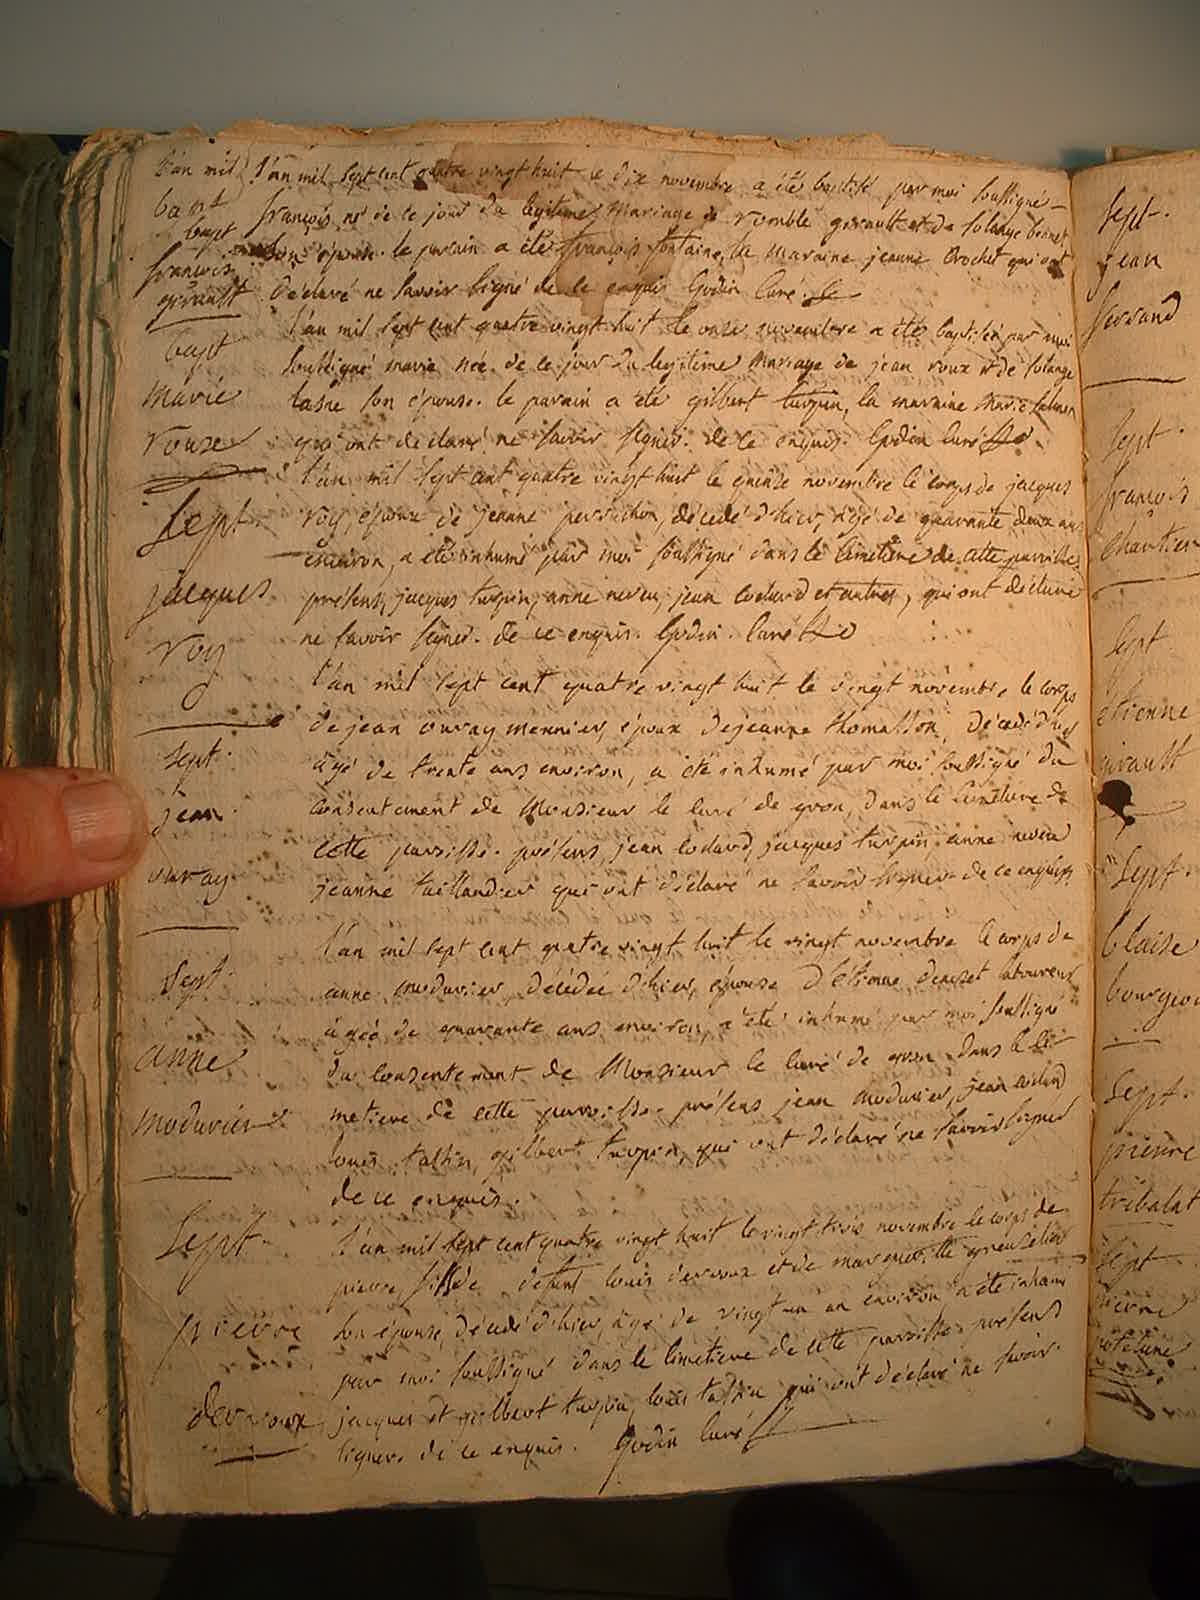 L'an mil L'an mil sept cent quatre vingt huit le dix novembre a été baptisé par moi soussigné
bapt
bapt
françois
girault
françois né de ce jour du legitime mariage de romble girault et de solange bonnet
son épouse. le parain a été françois fontaine, la maraine jeanne brochet qui ont
déclaré ne savoir signé de ce enquis Godin curé
bapt
marie
rouxe
l'an mil sept cent quatre vingt huit le onze novembre a été baptisée par moi
soussigné marie née de ce jour du legitime mariage de jean roux et de solange
lasne son épouse. le parain a été gilbert turpin, la maraine marie
qui ont declaré ne savoir signer. de ce enquis. Godin curé
Sept.
jacques
roy
l'an mil sept cent quatre vingt huit le quinze novembre le corps de jacques
roy, époux de jeanne perrichon, décedé d'hier, agé de quarante deux ans
environ, a été inhumé par moi soussigné dans le cimetiere de cette parroisse
présens, jacques turpin, anne neveu, jean codard et autres, qui ont déclaré
ne savoir signer. de ce enquis. Godin. curé
sept.
jean
ouvray
l'an mil sept cent quatre vingt huit le vingt novembre le corps
de jean ouvray meunier, époux de jeanne thomasson, décedé d'hier
agé de trente ans environ, a été inhumé par moi soussigné du
consentement de Monsieur le curé de gron, dans le cimetiere de
cette parroisse. présens, jean codard, jacques turpin, anne neveu
jeanne taillandier qui ont déclaré ne savoir signer de ce enquis
sept.
anne
moduriér
l'an mil sept cent quatre vingt huit le vingt novembre le corps de
anne modurier, décédée d'hier, épouse d'étienne laboureur
agée de quarante ans environ, a été inhumé par moi soussigné
du consentement de Monsieur le curé de gron dans le ci-
metiere de cette parroisse. présens jean modurier, jean codard
louis tassin, gilbert turpin, qui ont déclaré ne savoir signer
de ce enquis.
Sept.
pierre
dervoux
l'an mil sept cent quatre vingt huit le vingt trois novembre le corps de
pierre, fils de defunt louis dervoux et de margueritte
son épouse, décedé d'hier, agé de vingt un an environ a été inhumé
par moi soussigné dans le cimetiere de cette parroisse. présens
jacques et gilbert turpin, louis tassin qui ont déclaré ne savoir
signer. de ce enquis. Godin curé
sept.
jean
ferrand
sept.
françois
chartier
sept.
étienne
girault
sept.
blaise
bourgeoi
sept.
pierre
trébalat
sept
pierre